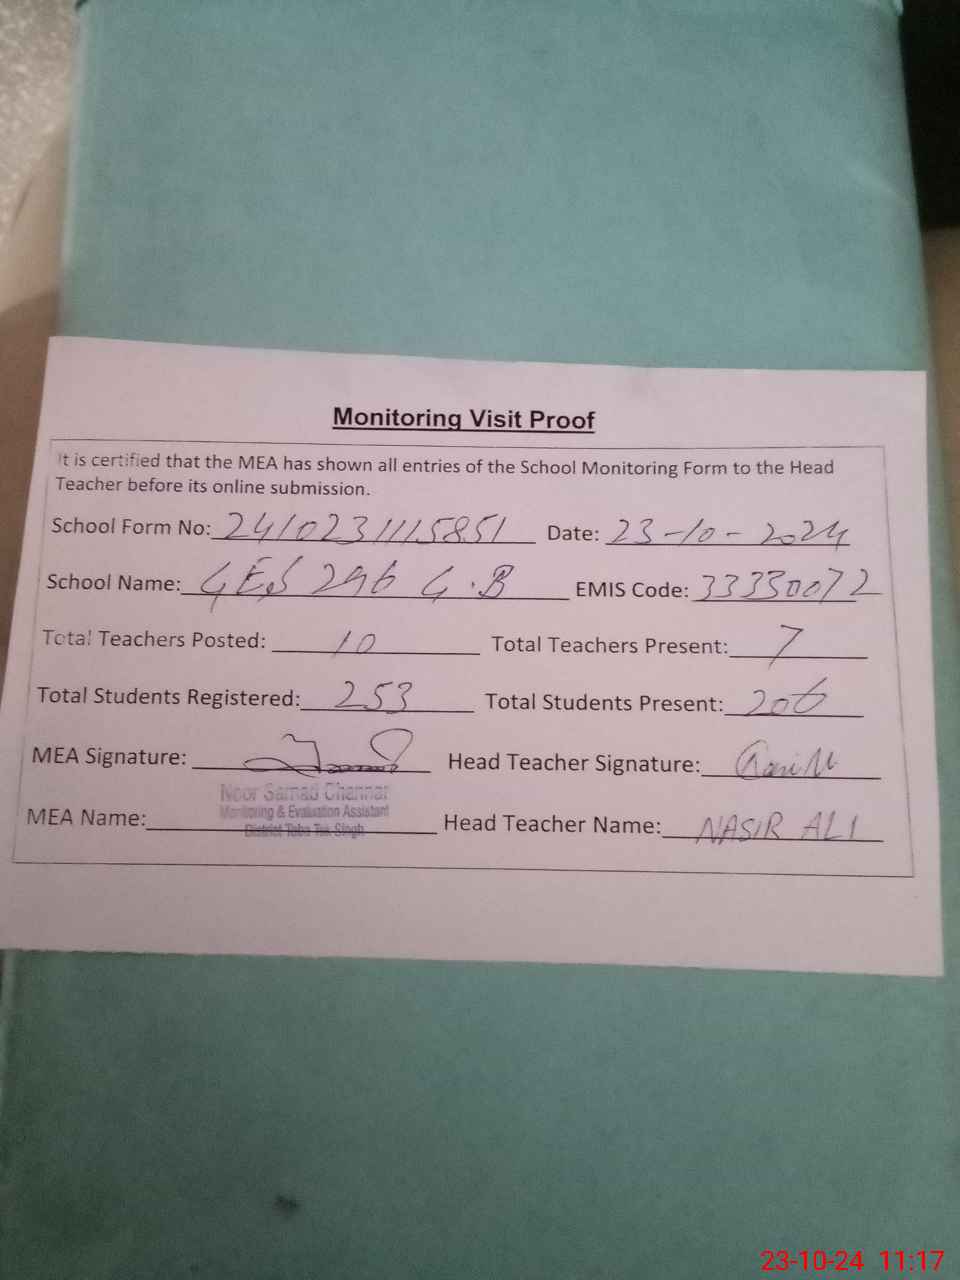 Monitoring Visit Proof
It is certified that the MEA has shown all entries of the School Monitoring Form to the Head
Teacher before its online submission.
School Form No: 2410231115851 Date: 23-10-2024
School Name: GES 296 G.B EMIS Code: 33330072
Total Teachers Posted: 10 Total Teachers Present: 7
Total Students Registered: 253 Total Students Present: 206
MEA Signature: Head Teacher Signature:
Noor Samad Channar
Monitoring & Evaluation Assistant
District Toba Tek Singh
MEA Name: Head Teacher Name: NASIR ALI
23-10-24 11:17